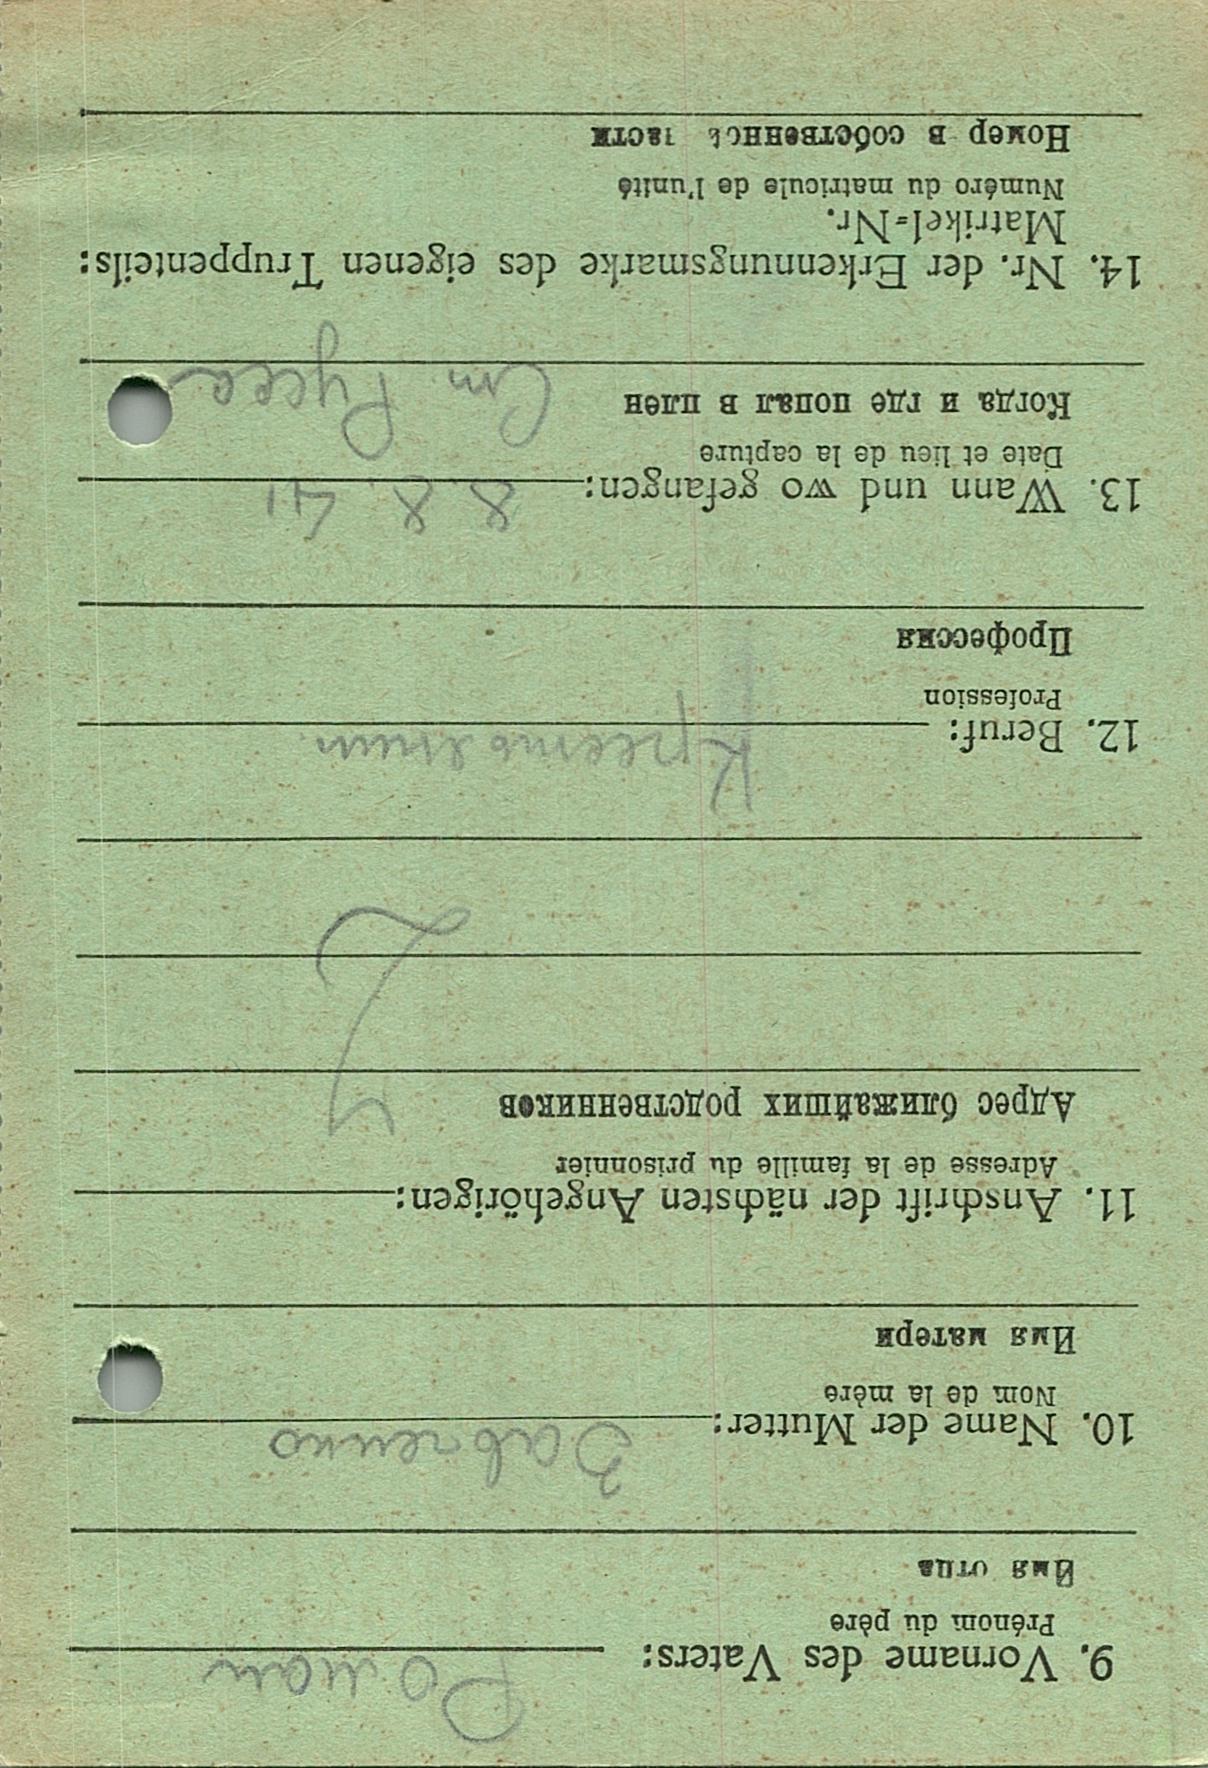 9. Vorname des Vaters: Роман
Prénom du père
Имя отца
10. Name der Mutter: Завгенко
Nom de la mère
Имя матери
11. Anschrift der nächsten Angehörigen:
Adresse de la famille du prisonnier
Адрес ближайших родственников
12. Beruf: Крестьянин
Profession
Профессия
13. Wann und wo gefangen: 8.8.41
Date et lieu de la capture
Когда и где попал в плен Ст. Русса
14. Nr. der Erkennungsmarke des eigenen Truppenteils:
Matrikel=Nr.
Numéro du matricule de l'unité
Номер в собственной части